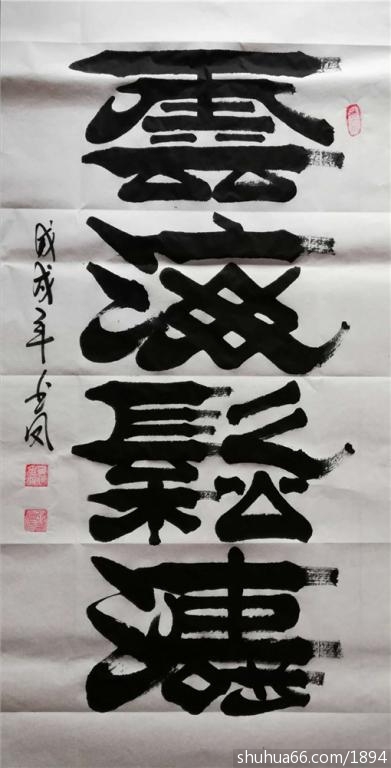 雲海鬆濤
戊戌年 凤
shuhua66.com/1894